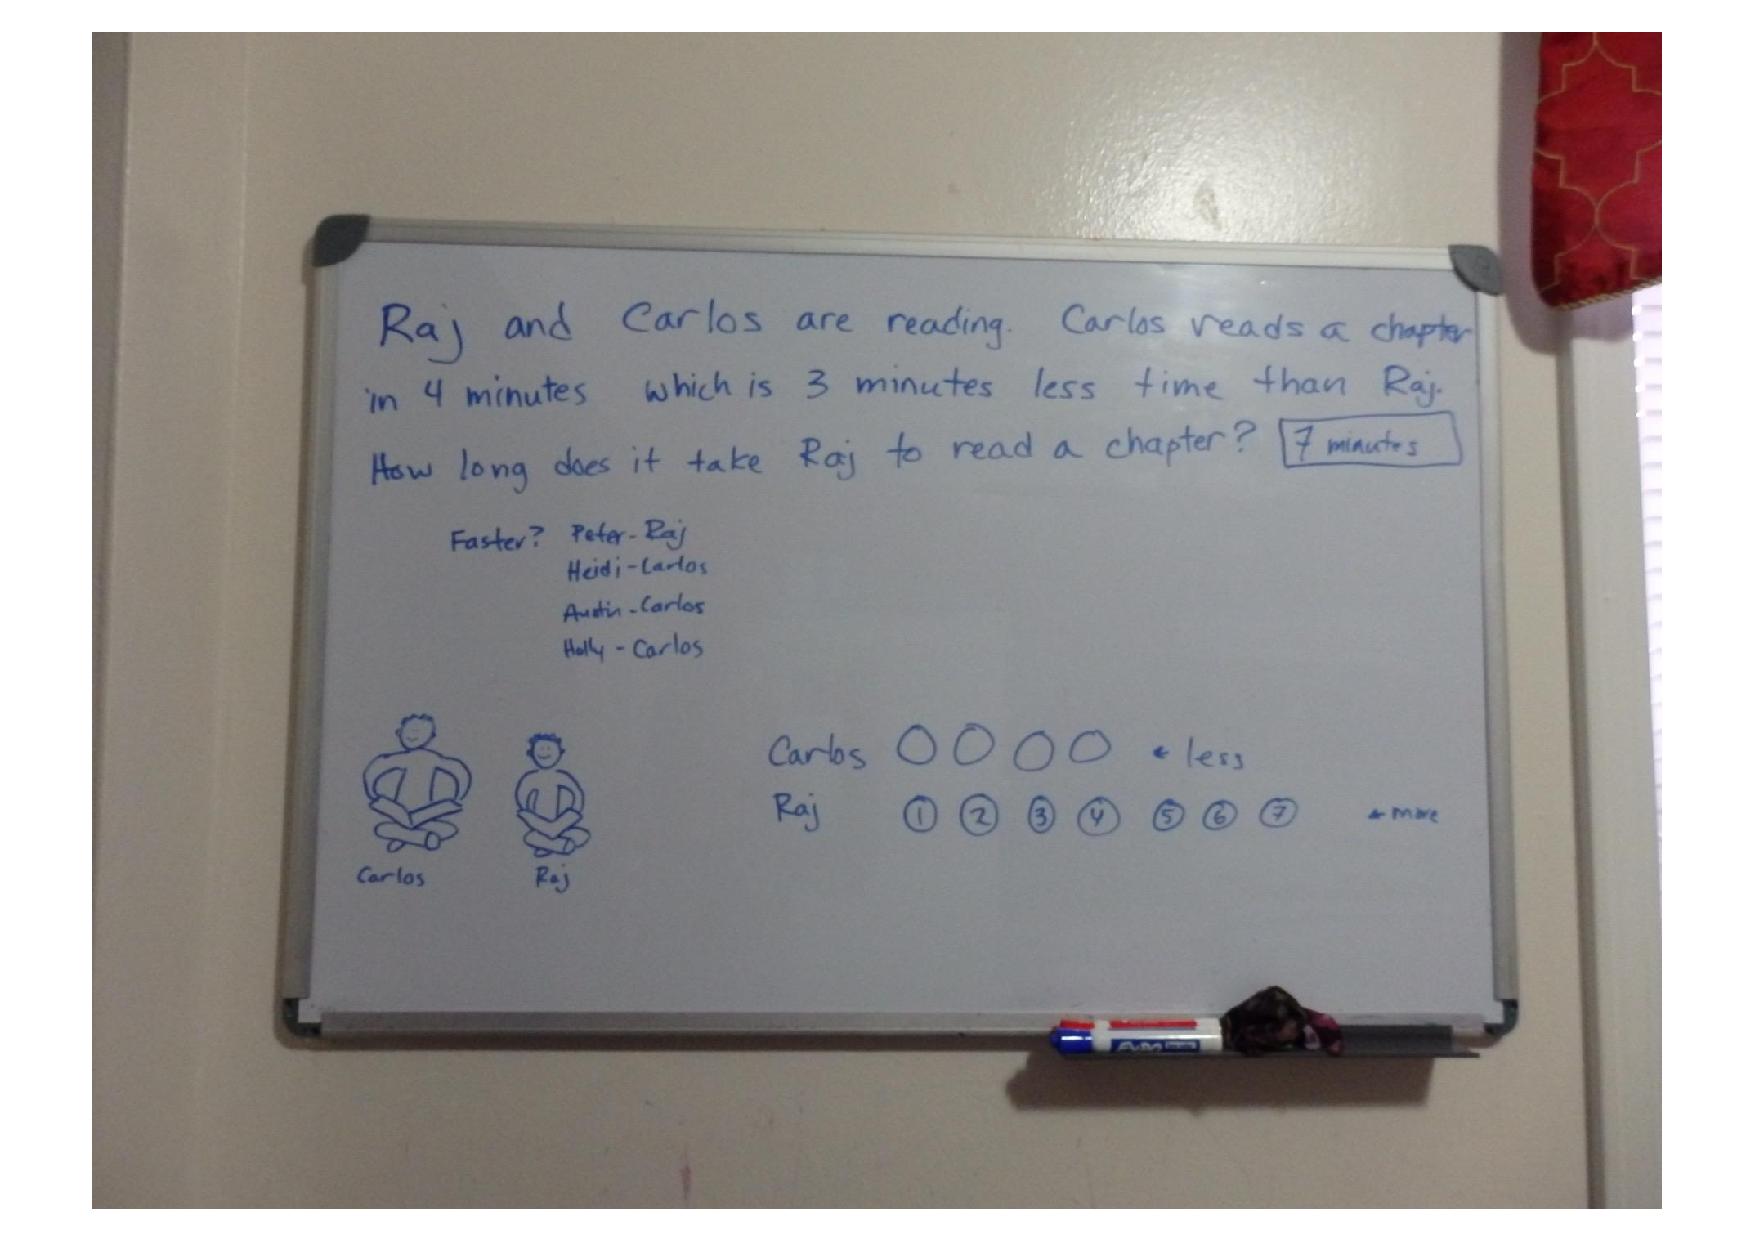 Raj and Carlos are reading. Carlos reads a chapter
in 4 minutes which is 3 minutes less time than Raj.
How long does it take Raj to read a chapter? 7 minutes
Faster? Peter - Raj
Heidi - Carlos
Austin - Carlos
Holly - Carlos
Carlos ← less
Raj 1 2 3 4 5 6 7 ← more
Carlos Raj
EXPO